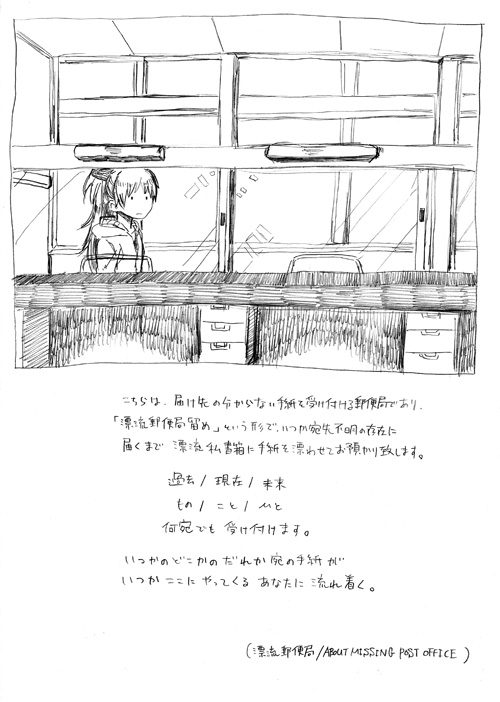 こちらは、届け先の分からない手紙を受け付ける郵便局であり、
「漂流郵便局留め」という形で、いつか宛先不明の存在に
届くまで 漂流私書箱に手紙を漂わせてお預かり致します。
過去/現在/未来
もの/こと/ひと
何宛でも 受け付けます。
いつかのどこかのだれか宛の手紙が
いつかここにやってくる あなたに流れ着く。
(漂流郵便局/ABOUT MISSING POST OFFICE)